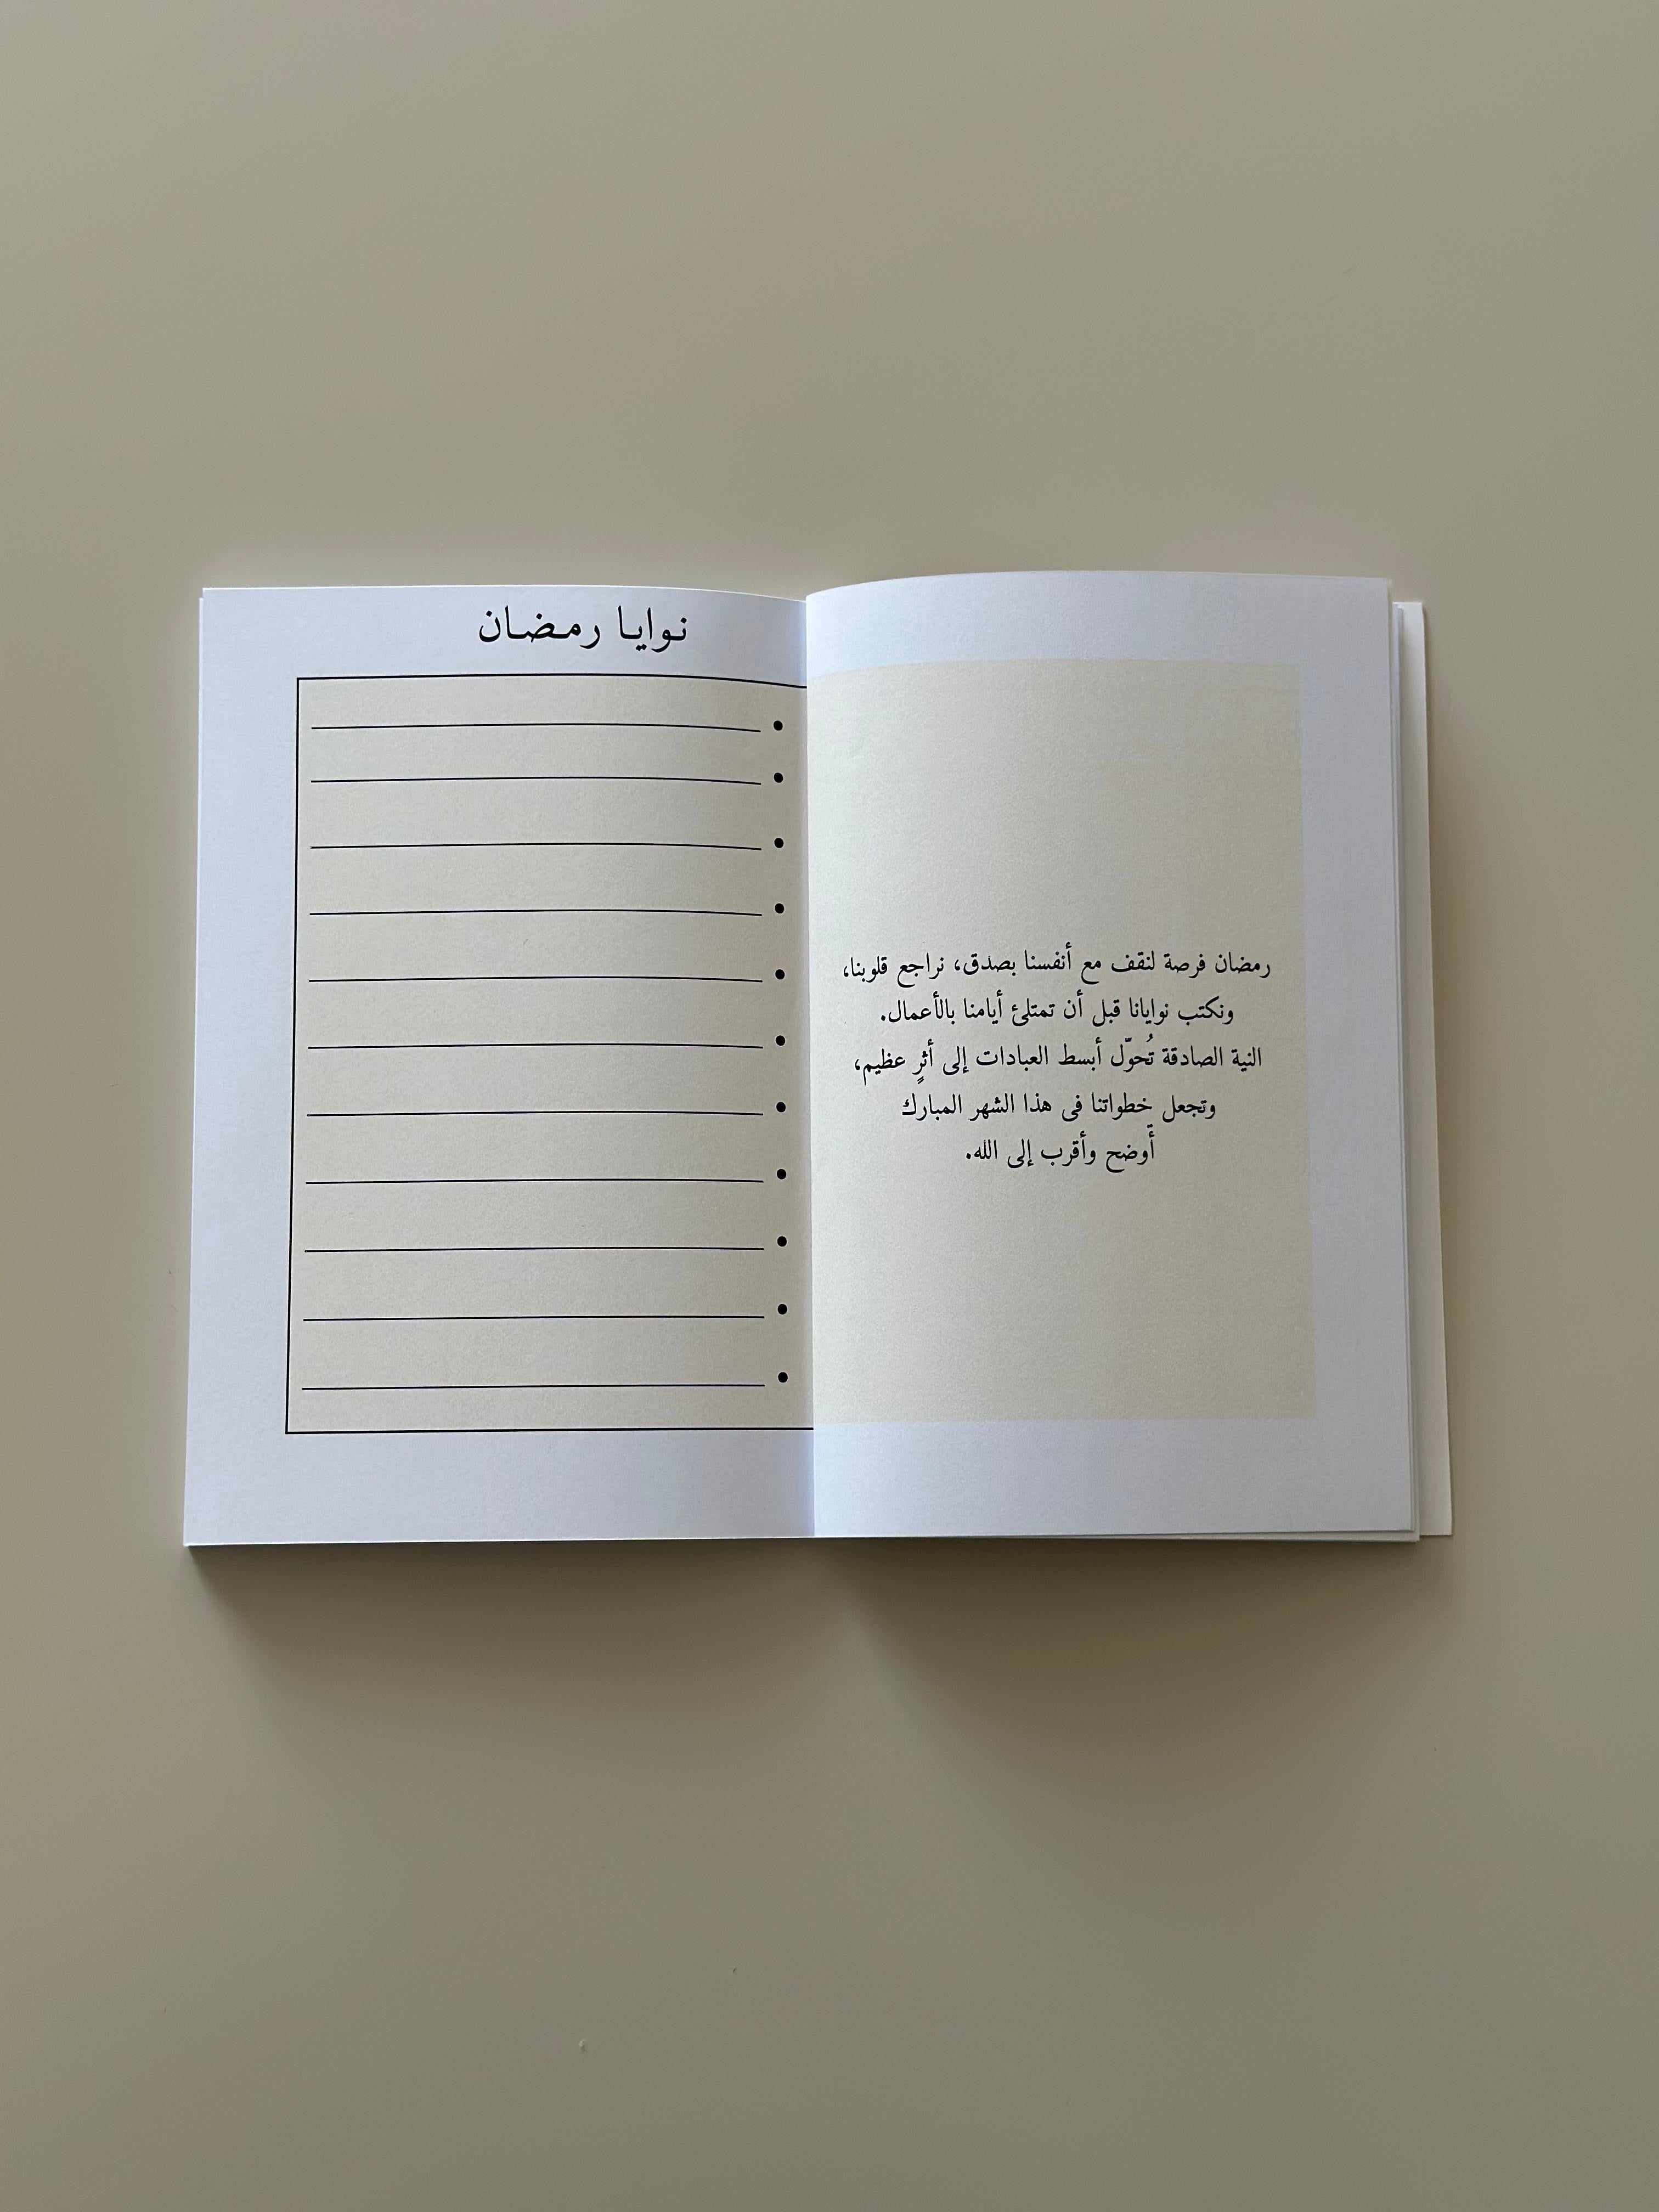 رمضان فرصة لنقف مع أنفسنا بصدق، نراجع قلوبنا،
ونكتب نوايانا قبل أن تمتلئ أيامنا بالأعمال.
النية الصادقة تُحوّل أبسط العبادات إلى أثرٍ عظيم،
وتجعل خطواتنا في هذا الشهر المبارك
أوضح وأقرب إلى الله.
نوايا رمضان